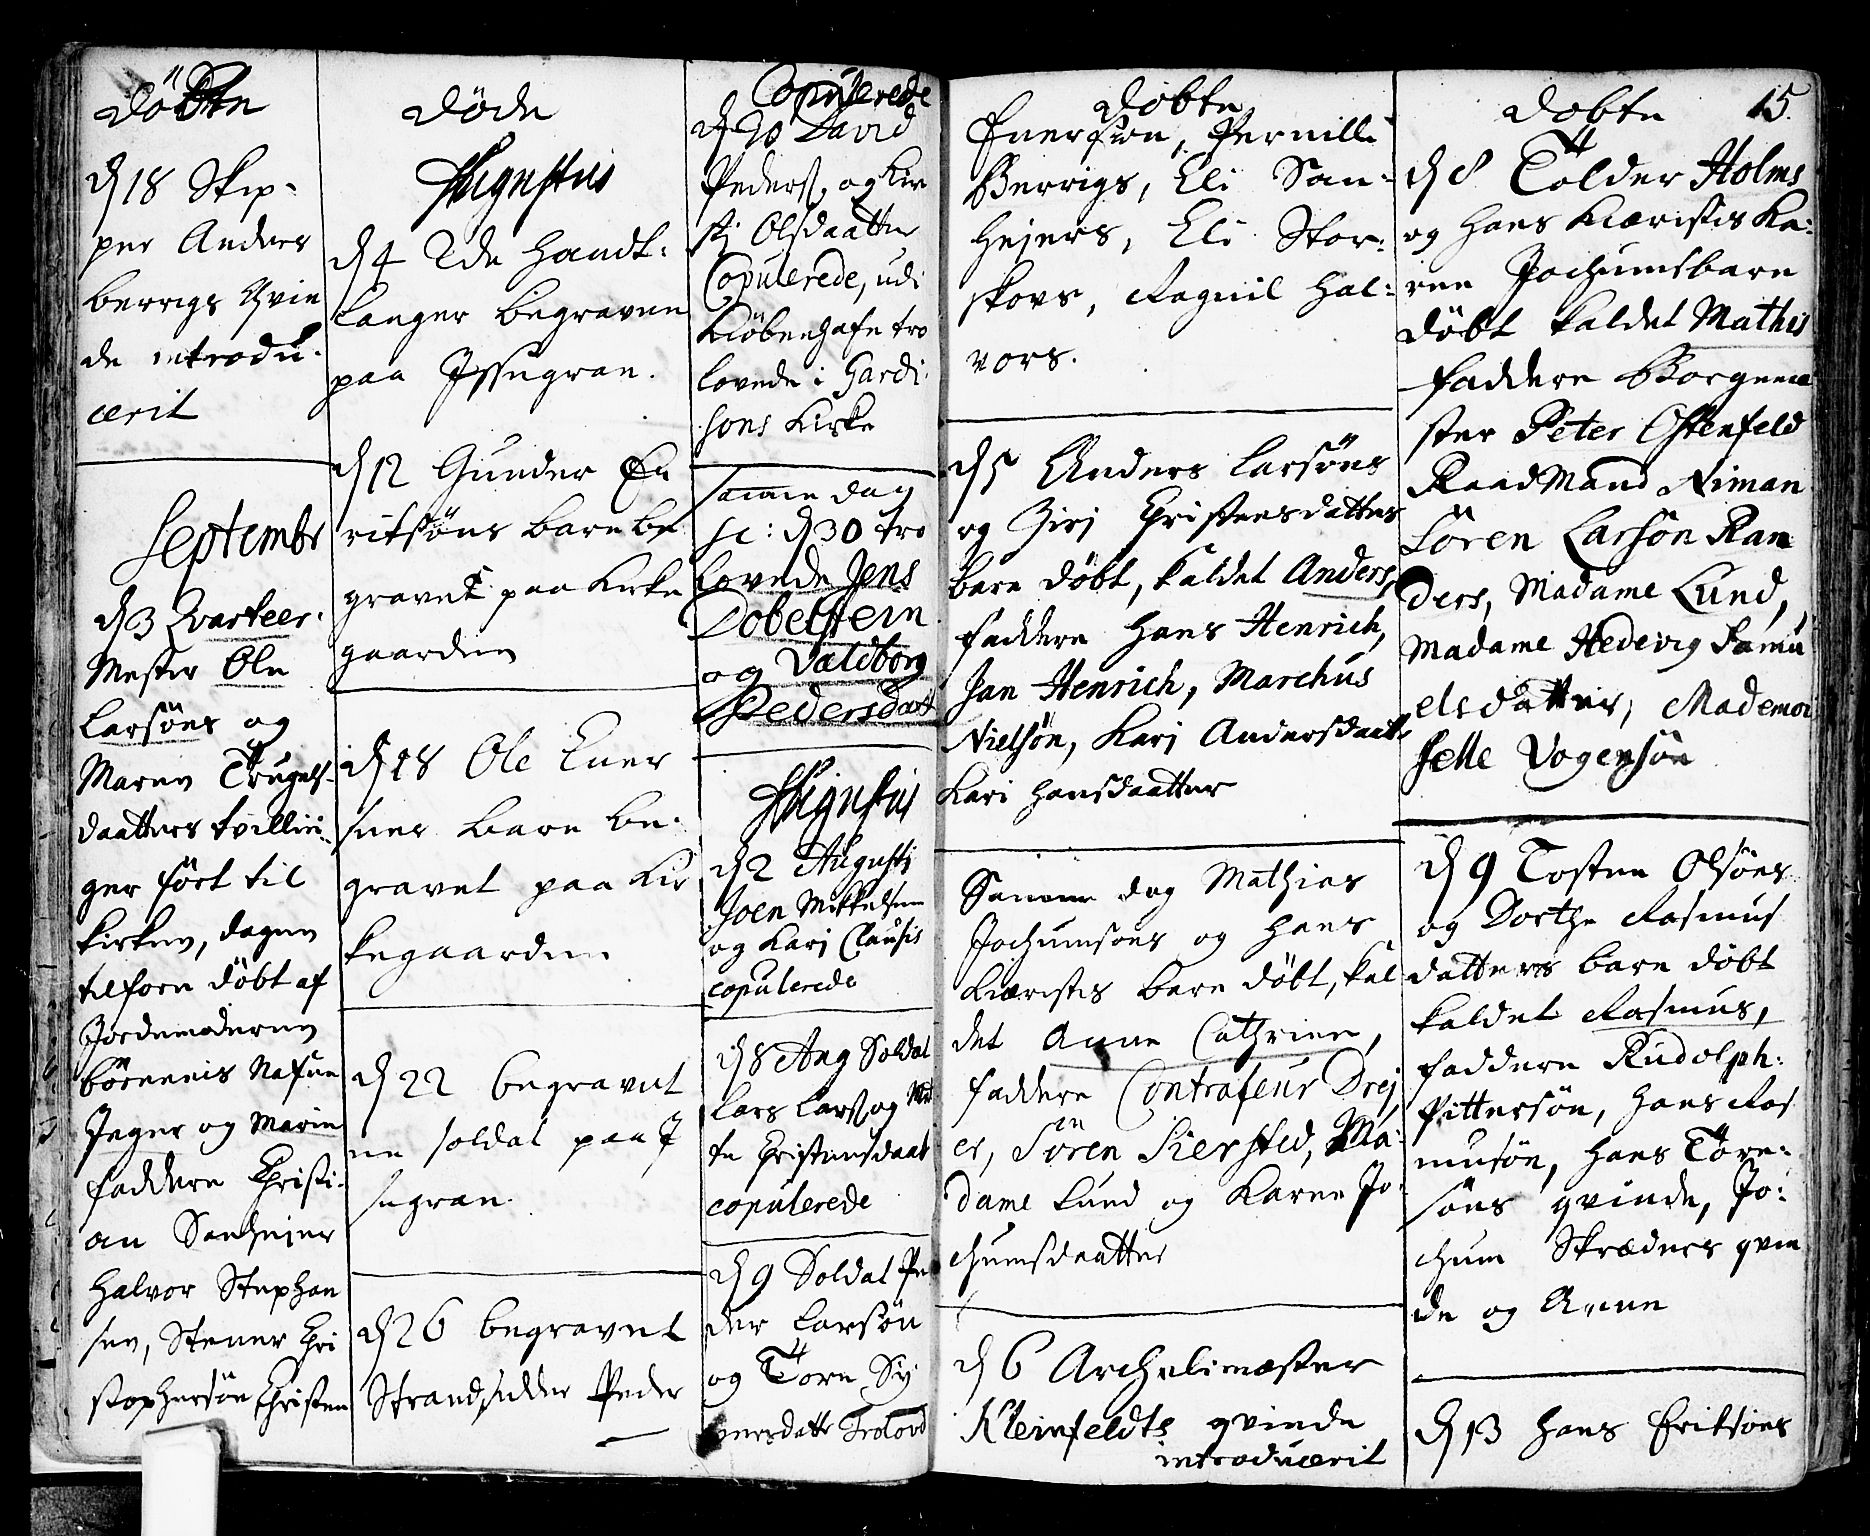 Döbte
d 18 Skip-
per Anders
berrigs Qvin
de introdu-
cerit
Septembr
d 3 Qvarteer-
Mester Ole
Larsöns og
Maren Trugels-
daatters tvillin-
ger fört til
kirken, dagen
tilforn döbt af
Jordemoderen
börnenis Nafne
Jeger og Marin
faddere Christi-
an Sanhejer
Halvor Stephan
sen, Stener Chri
stophersön Christen
Döde
Augustus
d 4 2de handt-
langer begraven
paa Issegran.
d 12 Gunder En
ritsöns barn be
gravet paa Kirke
gaarden
d 18 Ole Ener
sens barn be-
gravet paa Kir
kegaarden
d 22 begravet
en soldat paa I
segran.
d 26 begravet
Strandsidder Peder
Copulerede
d 30 David
Peders. og Kir
sti Olsdaatter
Copulerede, udi
Kiöbenhafn tro
lovede i Gardi-
sons Kirke
samme dag
sc: d 30 tro
lovede Jens
Dobelstein
og Valdborg
Pedersdaat
Augustus
d 2 Augusti
Joen Mikkelsen
og Kari Clausis
copulerede
d 8 Aug Soldat
Lars Lars. og
te Christensdaat
copulerede
d 9 Soldat Pe
der Larsön
og Torn Sy
versdatt Trolovd
Döbte
Enersön, Pernille
Berrigs, Eli San-
hejers, Eli Stor-
skovs, Ragnil Hal-
vors.
d 5 Anders Larsöns
og Siri Christensdatters
barn döbt, kaldet Anders,
faddere Hans Henrich,
Jan Henrich, Marchus
Nielsön, Kari Andersdaatt
Kari Hansdaatter
Samme dag Mathias
Jochumsons og Hans
Kiæristis barn döbt, kal
det Anne Cathrine,
faddere Contrafeur Drej
er, Sören Siersted, Ma-
dame Lund og Karen Jo-
chumsdaatter
d 6 Archelimæster
Kleinfeldts qvinde
introducerit
Döbte 15.
d 8 Tolder Holms
og hans Kiæristis Ka-
ren Jochumsbarn
döbt kaldet Mathis
faddere Borgeme
ster Peter Ostenfeld
Raadmand Niman
Sören Larsön Ran
ders, Madame Lund,
Madame Hedevig Samu
elsdatter, Mademoi
selle Vogensön
d 9 Tosten Olsöns
og Dorthe Rasmus
datters barn döbt
kaldet Rasmus,
faddere Rudolph-
Pittersön, Hans Ras
musön, Hans Töre-
söns qvinde, Jo-
chum Skræders qvin
de og Anne
d 13 Hans Eriksöns